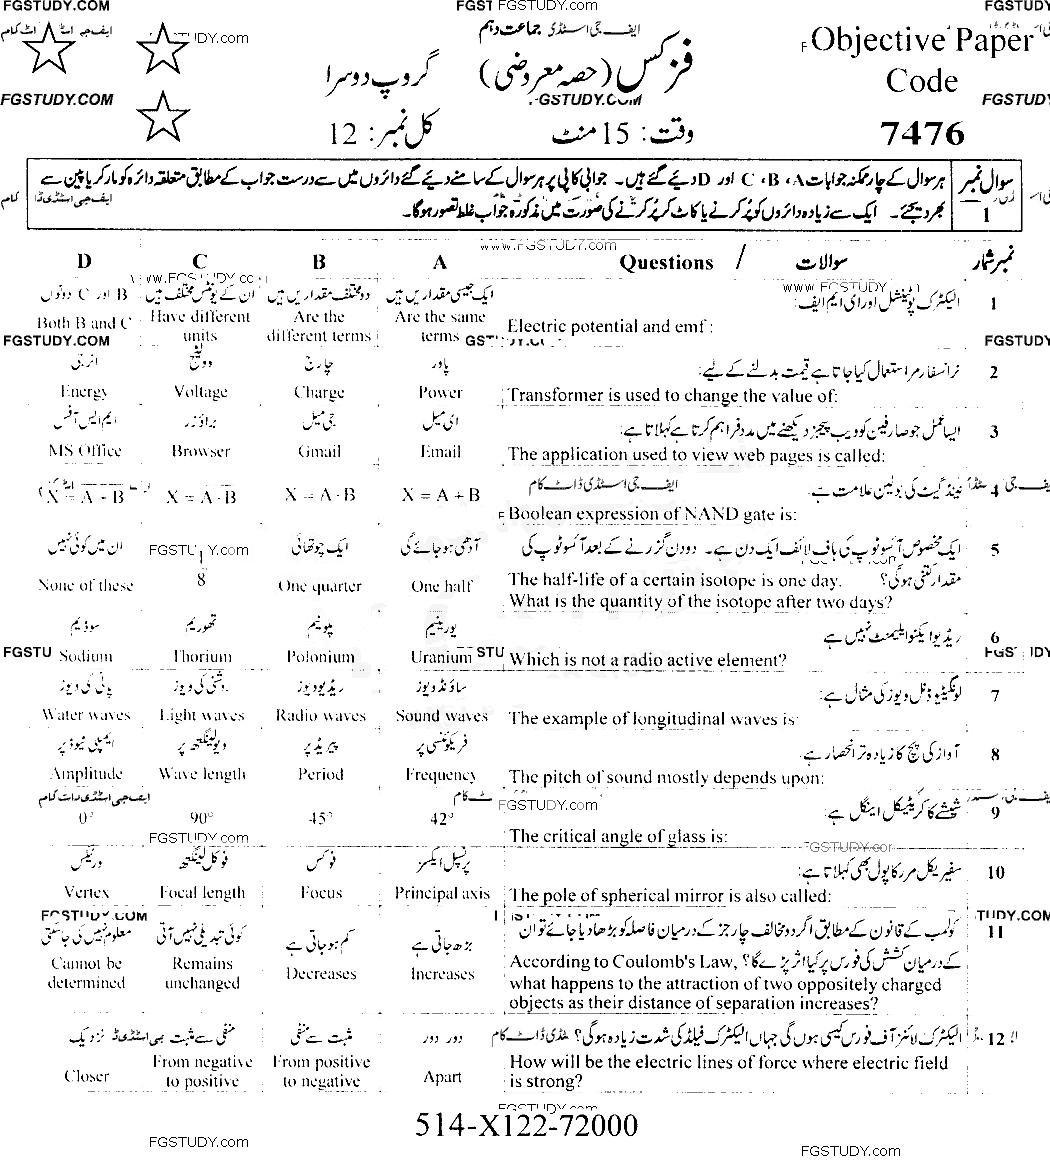 FGSTUDY.COM
FGSTUDY.COM
ایف جی اسٹڈی جماعت دہم
Objective Paper
فزکس (حصہ معروضی)
گروپ دوسرا
Code
FGSTUDY.COM
FGSTUDY
7476
وقت: 15 منٹ
کل نمبر: 12
سوال نمبر 1
ہر سوال کے چار ممکنہ جوابات A، B، C اور D دیئے گئے ہیں۔ جوابی کاپی پر ہر سوال کے سامنے دیئے گئے دائروں میں سے درست جواب کے مطابق متعلقہ دائرہ کو مارکر یا پین سے
بھر دیجئے۔ ایک سے زیادہ دائروں کو پُر کرنے یا کاٹ کر پُر کرنے کی صورت میں مذکورہ جواب غلط تصور ہوگا۔
www.FGSTUDY.com
نمبر شمار سوالات / Questions A B C D
1 الیکٹرک پوٹینشل اور ای ایم ایف:
ایک جیسی مقداریں ہیں دو مختلف مقداریں ہیں ان کے یونٹس مختلف ہیں B اور C دونوں
Electric potential and emf:
Are the same terms
Are the different terms
Have different units
Both B and C
FGSTUDY.COM
FGSTUDY
2 ٹرانسفارمر استعمال کیا جاتا ہے قیمت بدلنے کے لیے:
پاور چارج وولٹیج انرجی
Transformer is used to change the value of:
Power Charge Voltage Energy
3 ایسا عمل جو صارفین کو ویب پیجز دیکھنے میں مدد فراہم کرتا ہے کہلاتا ہے:
ای میل جی میل براؤزر ایم ایس آفس
The application used to view web pages is called:
Email Gmail Browser MS Office
4 نینڈ گیٹ کی بولین علامت ہے:
Boolean expression of NAND gate is:
X = A + B X = A · B
5 ایک مخصوص آئسوٹوپ کی ہاف لائف ایک دن ہے۔ دو دن گزرنے کے بعد آئسوٹوپ کی
مقدار کتنی ہوگی؟
آدھی ہو جائے گی ایک چوتھائی ان میں کوئی نہیں
The half-life of a certain isotope is one day.
What is the quantity of the isotope after two days?
One half One quarter 1/8 None of these
6 ریڈیو ایکٹو ایلیمنٹ نہیں ہے
یورینیم پولونیم تھوریم سوڈیم
Which is not a radio active element?
Uranium Polonium Thorium Sodium
7 لونگیٹیوڈنل ویوز کی مثال ہے:
ساؤنڈ ویوز ریڈیو ویوز روشنی کی ویوز پانی کی ویوز
The example of longitudinal waves is
Sound waves Radio waves Light waves Water waves
8 آواز کی پچ کا زیادہ تر انحصار ہے:
فریکوئنسی پر پیریڈ پر ویولینگتھ پر ایمپلی ٹیوڈ پر
The pitch of sound mostly depends upon:
Frequency Period Wave length Amplitude
9 شیشے کا کریٹیکل اینگل ہے:
The critical angle of glass is:
42° 45° 90° 0°
FGSTUDY.com
10 سفیریکل مرر کا پول بھی کہلاتا ہے:
پرنسپل ایکسز فوکس فوکل لینگتھ ورٹیکس
The pole of spherical mirror is also called:
Principal axis Focus Focal length Vertex
11 کولمب کے قانون کے مطابق اگر دو مخالف چارجز کے درمیان فاصلہ کو بڑھا دیا جائے تو ان
کے درمیان کشش کی فورس پر کیا اثر پڑے گا؟
بڑھ جاتی ہے کم ہو جاتی ہے کوئی تبدیلی نہیں آتی معلوم نہیں کی جا سکتی
According to Coulomb's Law,
what happens to the attraction of two oppositely charged
objects as their distance of separation increases?
Increases Decreases Remains unchanged Cannot be determined
12 الیکٹرک لائنز آف فورس کیسی ہوں گی جہاں الیکٹرک فیلڈ کی شدت زیادہ ہوگی؟
دور دور مثبت سے منفی منفی سے مثبت نزدیک
How will be the electric lines of force where electric field
is strong?
Apart From positive to negative From negative to positive Closer
514-X122-72000
FGSTUDY.com
FGSTUDY.com